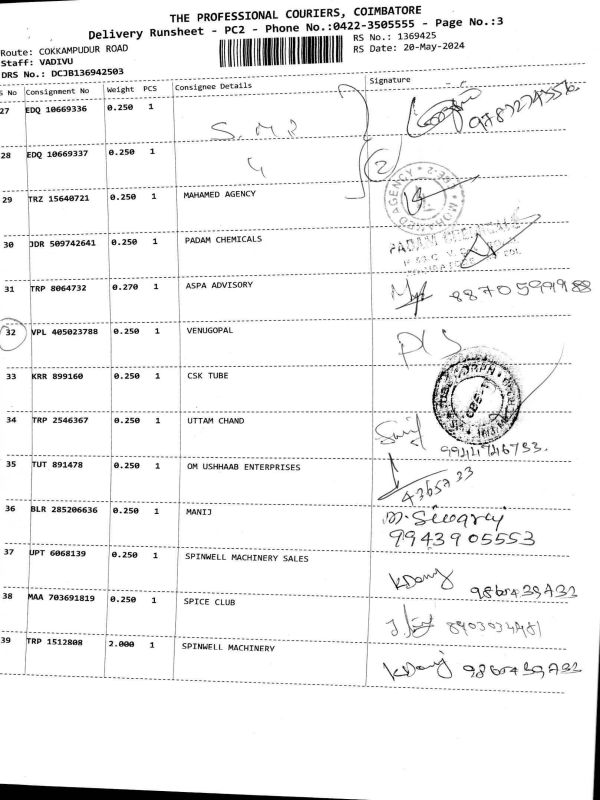 THE PROFESSIONAL COURIERS, COIMBATORE
Delivery Runsheet - PC2 - Phone No.:0422-3505555 - Page No.:3
Route: COKKAMPUDUR ROAD RS No.: 1369425
Staff: VADIVU RS Date: 20-May-2024
DRS No.: DCJB136942503
S No Consignment No Weight PCS Consignee Details Signature
27 EDQ 10669336 0.250 1
S.M.R
28 EDQ 10669337 0.250 1 2
29 TRZ 15640721 0.250 1 MAHAMED AGENCY
30 JDR 509742641 0.250 1 PADAM CHEMICALS PADAM CHEMICALS
31 TRP 8064732 0.270 1 ASPA ADVISORY
32 VPL 405023788 0.250 1 VENUGOPAL
33 KRR 899160 0.250 1 CSK TUBE
34 TRP 2546367 0.250 1 UTTAM CHAND
35 TUT 891478 0.250 1 OM USHHAAB ENTERPRISES
36 BLR 285206636 0.250 1 MANIJ
9943905553
37 UPT 6068139 0.250 1 SPINWELL MACHINERY SALES
38 MAA 703691819 0.250 1 SPICE CLUB
39 TRP 1512808 2.000 1 SPINWELL MACHINERY